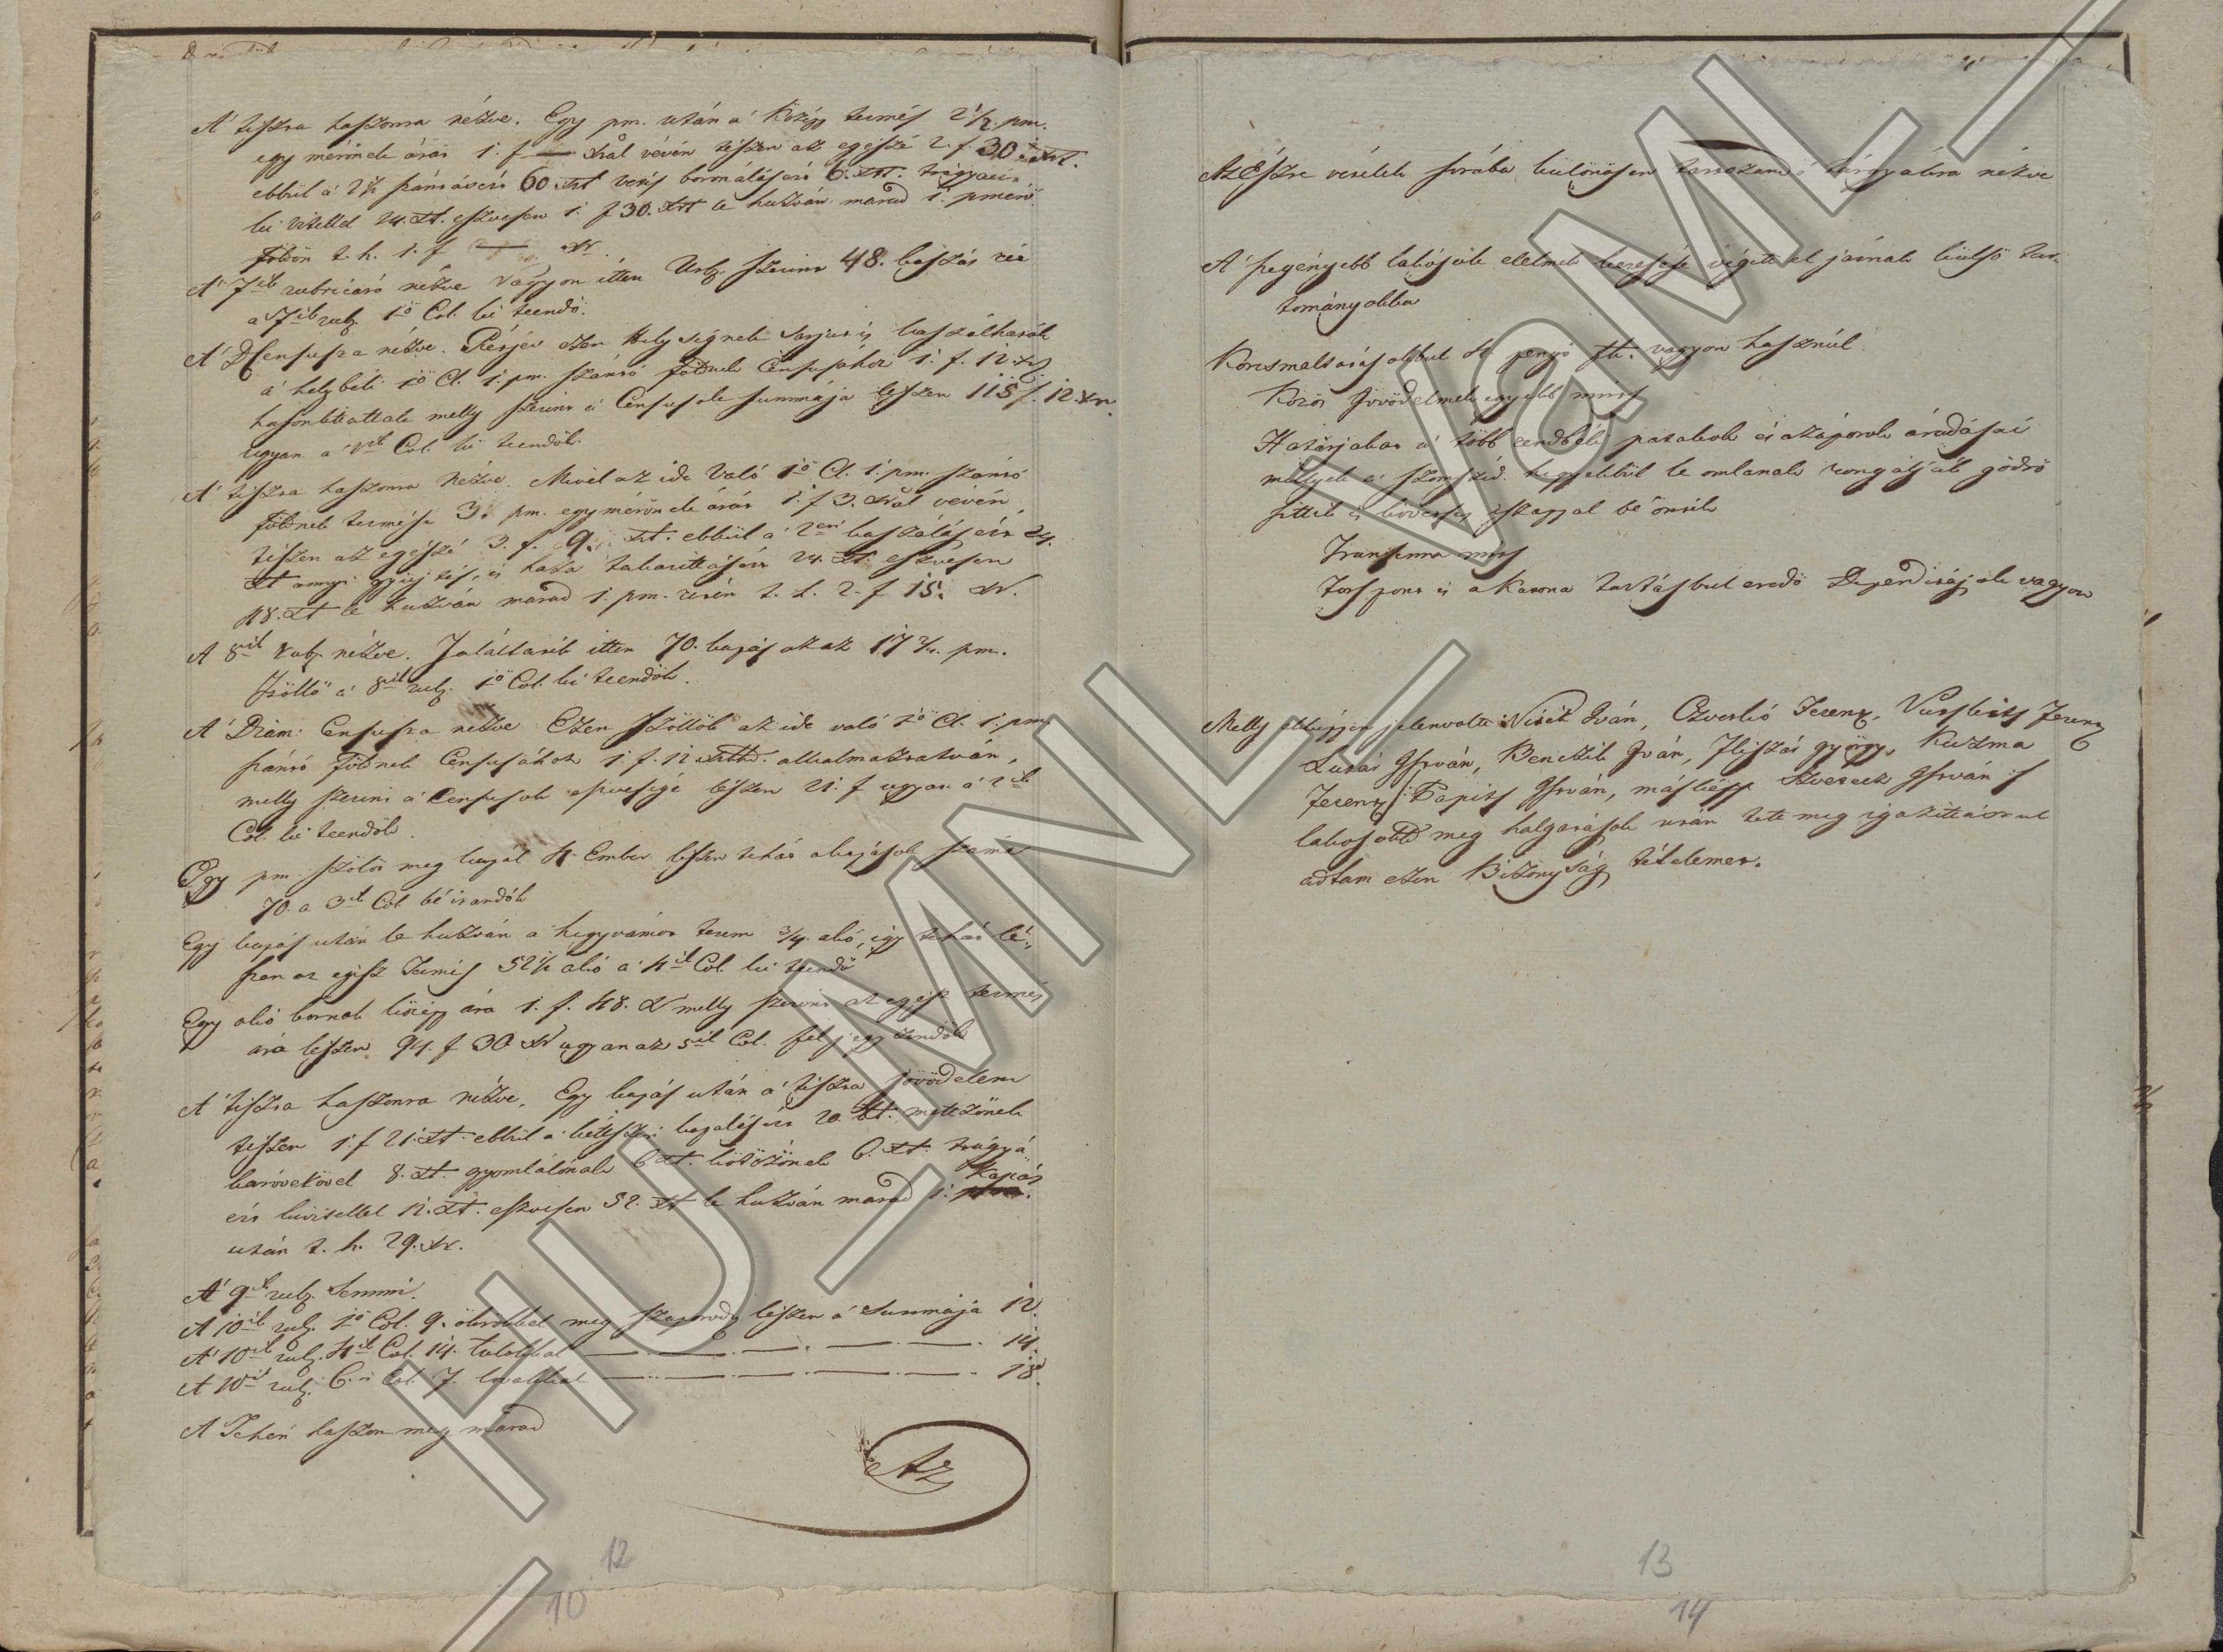 A' tiszta haszonra nézve. Egy pm. után a' Közép termés 2 1/2 pm.
egy mérőnek árát 1. f — xrál vévén tészen az egészsé 2. f 30 xrt.
ebbül a' 2 szántásért 60 xrt vetés boronálásért 6. xrt. trágyaért
ki vitellel 24. xt. eszvesen 1. f 30. xrt le huzván marad 1. pmérő
földön t. h. 1. f — xr.
A' 7ik rubricáró nézve vagyon itten Urb. szerint 48. kaszás rét
a 7ik rub. 1ő Col. ki teendő.
A' Censusra nézve. Rétjei ezen Helységnek Sarjut is kaszálhatók
a' helybéli 1ő Cl. 1. pm. szántó földnek Censusához 1. f. 12 xr
hasonlittattak melly szerint a' Censusok summája lészen 115 f. 12 xr.
ugyan a' Col. ki teendők.
A' tiszta haszonra nézve. Mivel az ide való 1ő Cl. 1. pm. szántó
földnek termése 3. pm. egy mérőnek árát 1. f 3. xrál vévén
tészen az egészsé 3. f. 9. xrt. ebbül a' 2eri kaszálásért 24.
xt annyi gyüjtés, és haza takarittásért 24 xt. eszvesen
48. xt le huzván marad 1. pm. rétén t. h. 2. f 15. xr.
A 8ik rub. nézve. Találtatik itten 70. kapás azaz 17 2/4. pm.
szőllő a' 8ik rub. 1ő Col. ki teendők.
A' Censusra nézve Ezen szőllők az ide való 1ő Cl. 1. pm.
szántó földnek Censusához 1. f. 12 alkalmaztatván,
melly szerint a' Censusok eszvesége lészen 21. f ugyan a' 2ik
Col. ki teendők.
Egy pm. szőlőt meg kapál 4. Ember lészen tehát a kapások száma
70. a 3ik Col bé irandók
Egy kapás után le huzván a' hegyvámot terem 3/4. akó, így tehát lé-
szen az egész Termés 52 1/2 akó a' 4ik Col. ki teendő
Egy akó bornak közép ára 1. f. 48. x melly szerint az egész termés
ára lészen 94. f 30 xr ugyan az 5ik Col. fel jegyzendők
A' tiszta haszonra nézve. Egy kapás után a' tiszta jövödelem
tészen 1. f 21. xt. ebbül a' kétszeri kapálásért 20. xt. metszőnek
karóverővel 8. xt. gyomlálónak 6 xt. kötözőnek 6. xt. trágyá
ért kivitellel 12. xt. eszvesen 52. xt le huzván marad 1. Kapás
után t. h. 29. xr.
A' 9ik rub. Semmi.
A 10ik rub. 1ő Col. 9. ökrökkel meg szaporodo lészen a' Summája 12.
A' 10ik rub. 4ik Col. 14. tulokkal — — — — — 14.
A 10ik rub. 6. Col. 7. lovakkal — — — — — 18.
A Tehén haszon meg marad
Az
12
10
Az Észre vételek sorába különösen tartozandó tárgyakra nézve
A' szegényebb lakósok élelmek keresése végett el járnak külső tar-
tományokba
Korcsmaltatásokbul 4. pengő fr. vagyon hasznúl
Közös jövödelmek egyébb nints
Határjokat a' több rendbéli patakok és a záporok áradásai
mellyek a' szomszéd hegyekbül le omlanak rongálják gödrö
sittik és kövessé iszappal bé öntik
Transenna nints
Forspont és a Katona tartásbul eredő Deperditájok vagyon
Melly eképpen jelenvolt Visik Iván, Czverkó Ferenz, Ferenz
Lukáts István, Benezik Iván, Iliszár györgy, Kuzma
Ferenz, Papits István, másképp István s
lakosokk meg halgatások után tett meg igazittásrul
adtam ezen Bizonyság tételemet.
13
14
HU_MNL_VaML_I